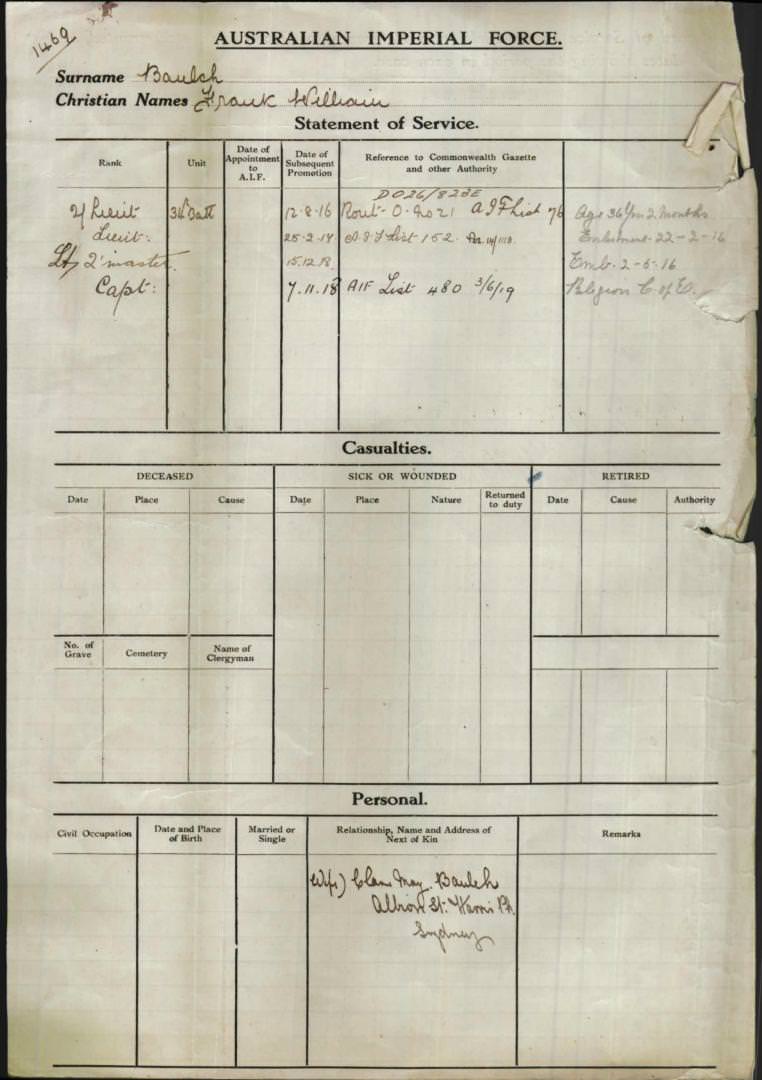 1469
AUSTRALIAN IMPERIAL FORCE.
Surname Baulch
Christian Names Frank William
Statement of Service.
Rank Unit Date of Appointment to A.I.F. Date of Subsequent Promotion Reference to Commonwealth Gazette and other Authority
DO26/823E
2/Lieut 34 Batt 12-8-16 Rout-O-No 21 AIF List 76 Age 36 Yrs 2 Months
Lieut: 25-2-17 A.I.F List 152. Enlistment-22-2-16
Lt/ Q'master. 15.12.18. Emb. 2-5-16
Capt: 7.11.18 AIF List 480 3/6/19 Religion C. of E.
Casualties.
DECEASED SICK OR WOUNDED RETIRED
Date Place Cause Date Place Nature Returned to duty Date Cause Authority
No. of Grave Cemetery Name of Clergyman
Personal.
Civil Occupation Date and Place of Birth Married or Single Relationship, Name and Address of Next of Kin Remarks
Wife) Clara May Baulch
Albion St. Harris Pk
Sydney